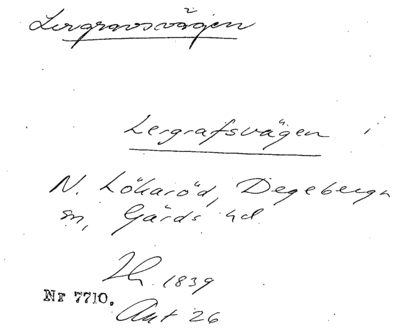 Lergravsvägen
Lergrafsvägen i
N. Lökaröd, Degeberga
sn, Gärds hd
Lh. 1839
Nr 7710.
Akt 26